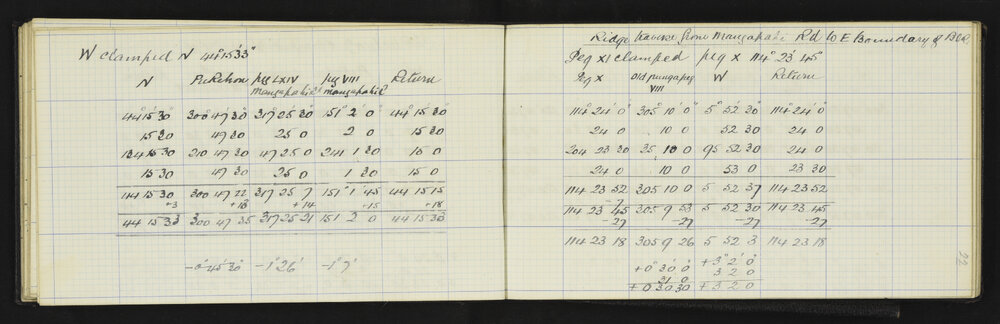 W clamped N 44° 15' 33"
N Pukehou peg LXIV mangapahi peg VIII mangapahi Return
44° 15' 30" 300° 47' 30" 317° 25' 30" 151° 2' 0" 44° 15' 30"
15 30 47 30 25 0 2 0 15 30
134 15 30 210 47 30 47 25 0 241 1 30 15 0
15 30 47 30 25 0 1 30 15 0
44 15 30 300 47 22 317 25 7 151° 1' 45 44 15 15
+3 +13 +14 +15 +18
44 15 33 300 47 35 317 25 21 151 2 0 44 15 33
-0° 45' 30" -1° 26' -1° 7'
Ridge traverse from Mangapahi Rd to E Boundary of
Peg XI clamped peg X 114° 23' 45"
Peg X old punga peg VIII W Return
114° 24' 0" 305° 10' 0" 5° 52' 30" 114° 24' 0"
24 0 10 0 52 30 24 0
204 23 30 35 10 0 95 52 30 24 0
24 0 10 0 53 0 23 30
114 23 52 305 10 0 5 52 37 114 23 52
-7
114 23 45 305 9 53 5 52 30 114 23 45
-27 -27 -27 -27
114 23 18 305 9 26 5 52 3 114 23 18
+0° 30' 0" +3° 2' 0"
31 0 3 2 0
+0 30 30 +3 2 0
22